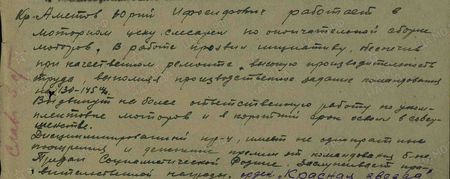 Кр-Аметов Юрий Иосифович работает в
моторном цеху слесарем по окончательной сборке
моторов. В работе проявил инициативу, обеспечив
при качественном ремонте, высокую производительность
труда, выполняя производственное задание командования
на 130-145%.
Выдвинут на более ответственную работу по уком-
плектовке моторов и в короткий срок освоил в совер-
шенстве.
Дисциплинированный кр-ц, имеет не однократные
поощрения и денежные премии от командования б-на.
Предан Социалистической Родине. Заслуживает пра-
вительственной награды, орден "Красная звезда".